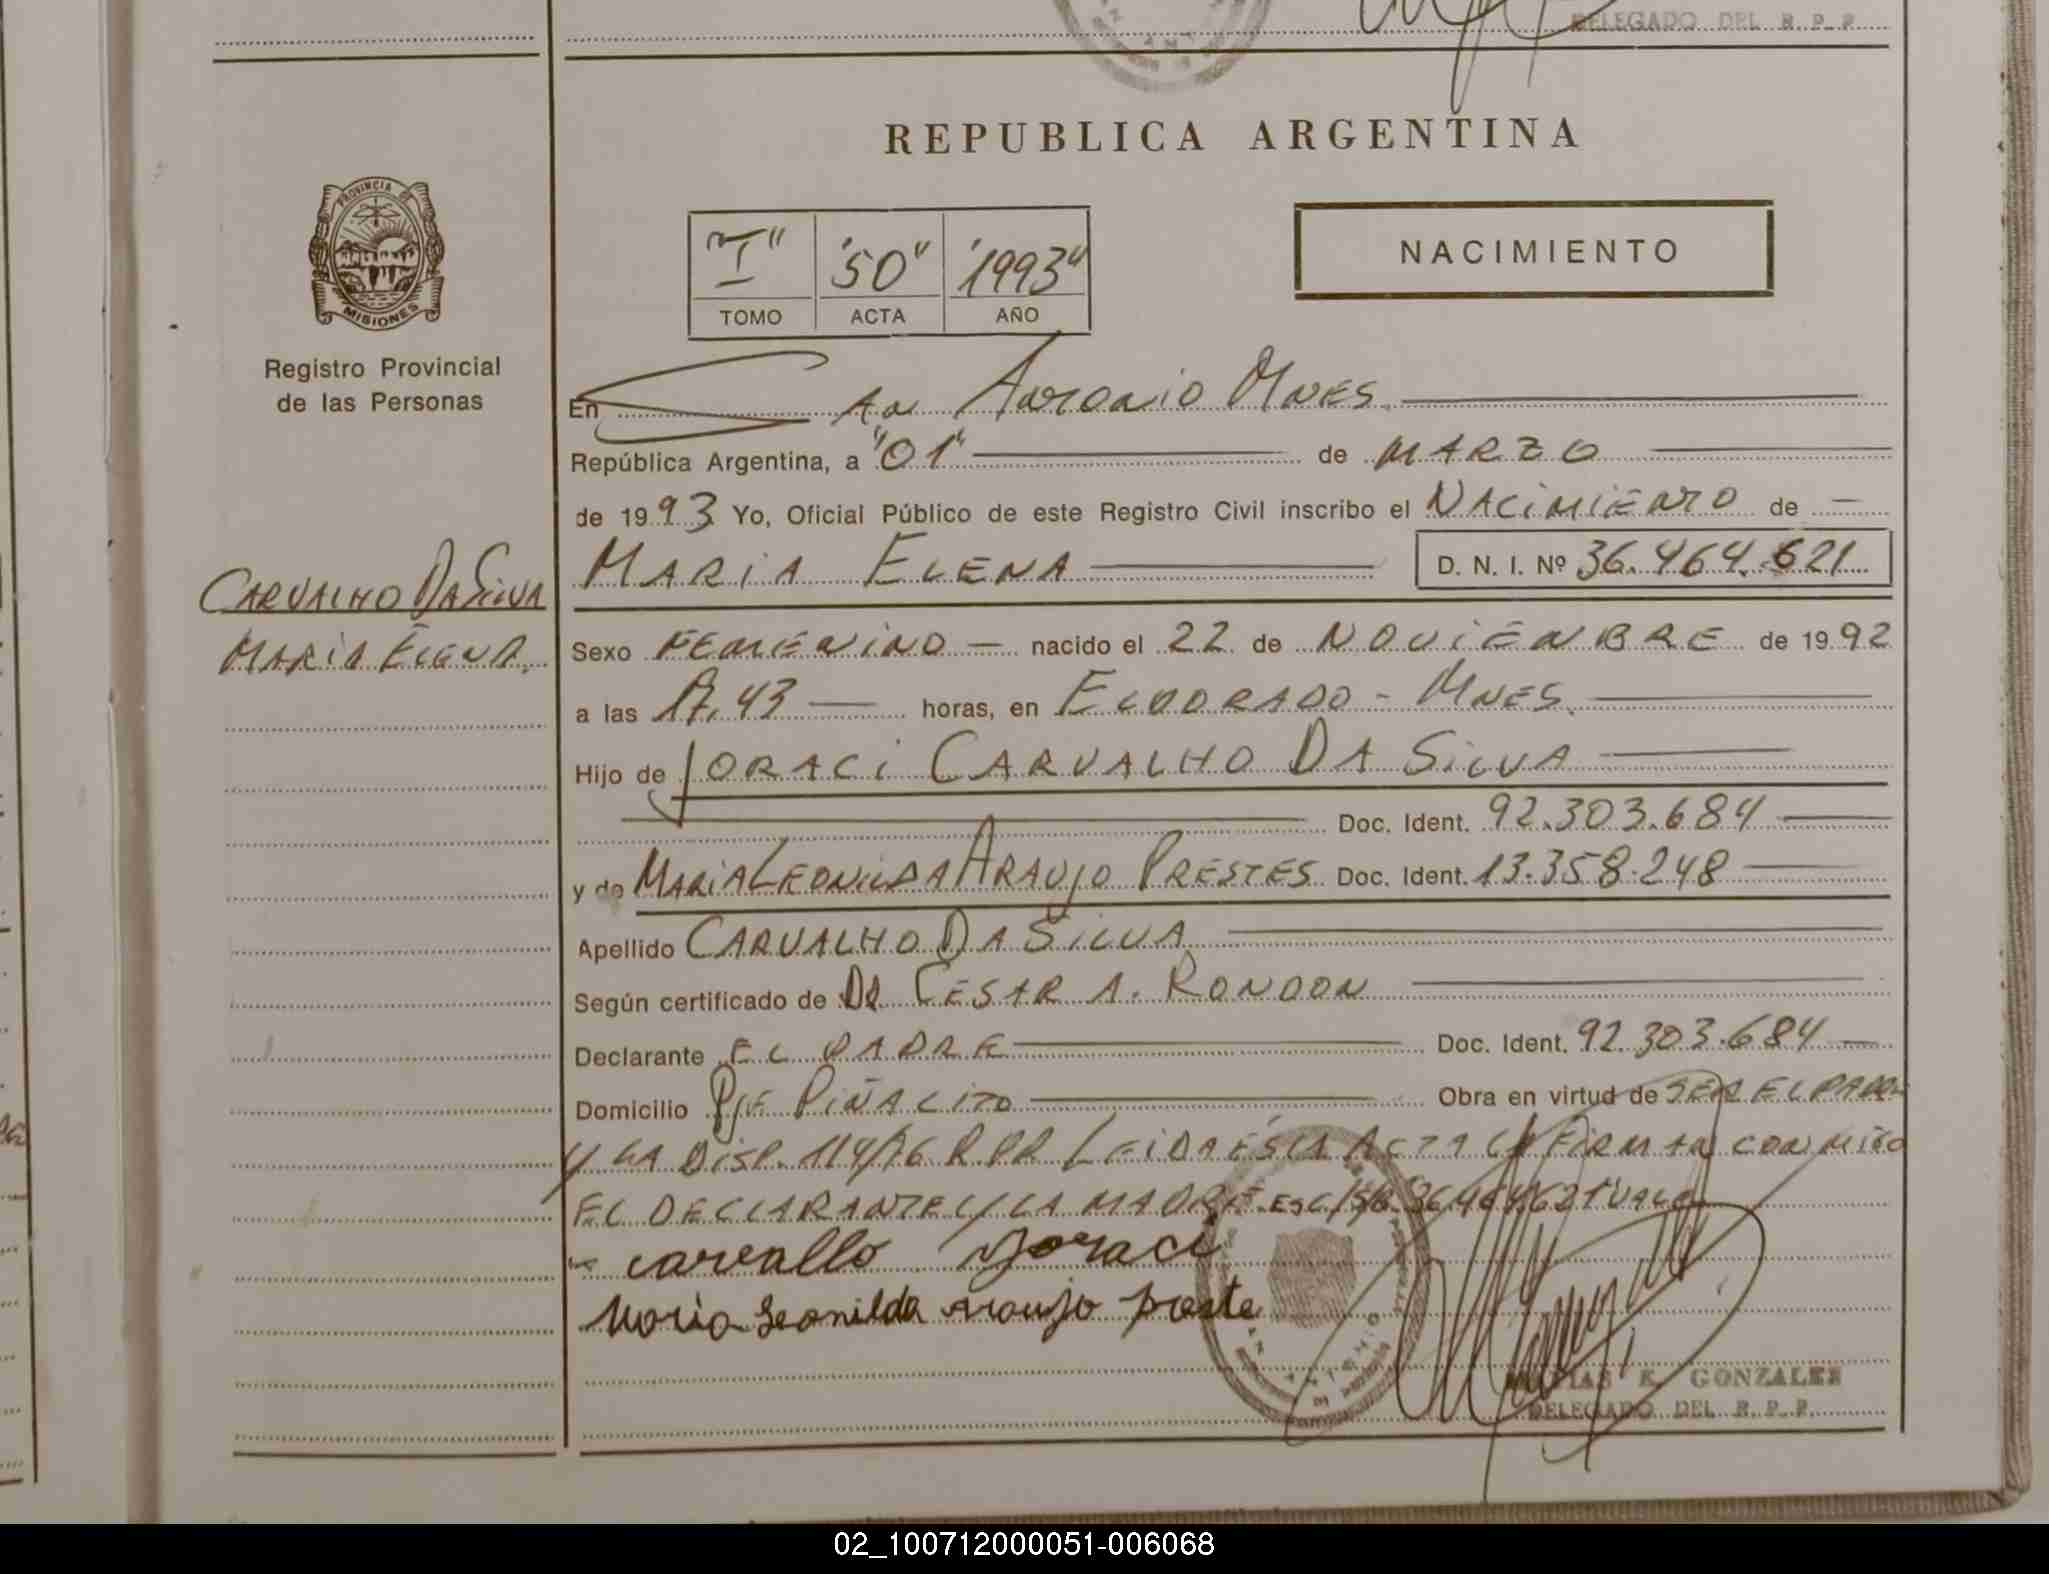 DELEGADO DEL R.P.P.
REPUBLICA ARGENTINA
PROVINCIA DE
MISIONES
Registro Provincial
de las Personas
"I" "50" "1993"
TOMO ACTA AÑO
NACIMIENTO
En San Antonio Mnes.
República Argentina, a "01" de MARZO
de 1993 Yo, Oficial Público de este Registro Civil inscribo el NACIMIENTO de
MARIA ELENA D. N. I. Nº 36.464.621
CARVALHO DA SILVA
MARIA ELENA.
Sexo FEMENINO nacido el 22 de NOVIENBRE de 1992
a las 17,43 horas, en ELDORADO - MNES.
Hijo de JORACI CARVALHO DA SILVA
Doc. Ident. 92.303.684
y de MARIA LEONILDA ARAUJO PRESTES Doc. Ident. 13.358.248
Apellido CARVALHO DA SILVA
Según certificado de DR CESAR A. RONDON
Declarante EL PADRE Doc. Ident. 92.303.684
Domicilio PJE PIÑALITO Obra en virtud de SER EL PADRE
Y LA DISP. 114/76 R.P.P. LEIDA ESTA ACTA LA FIRMAN CONMIGO
EL DECLARANTE Y LA MADRE. ESC/S/B. 36.464.621 VALE
carvallo Joraci
Maria Leonilda Araujo preste
SAN ANTONIO
K. GONZALEZ
DELEGADO DEL R.P.P.
02_100712000051-006068